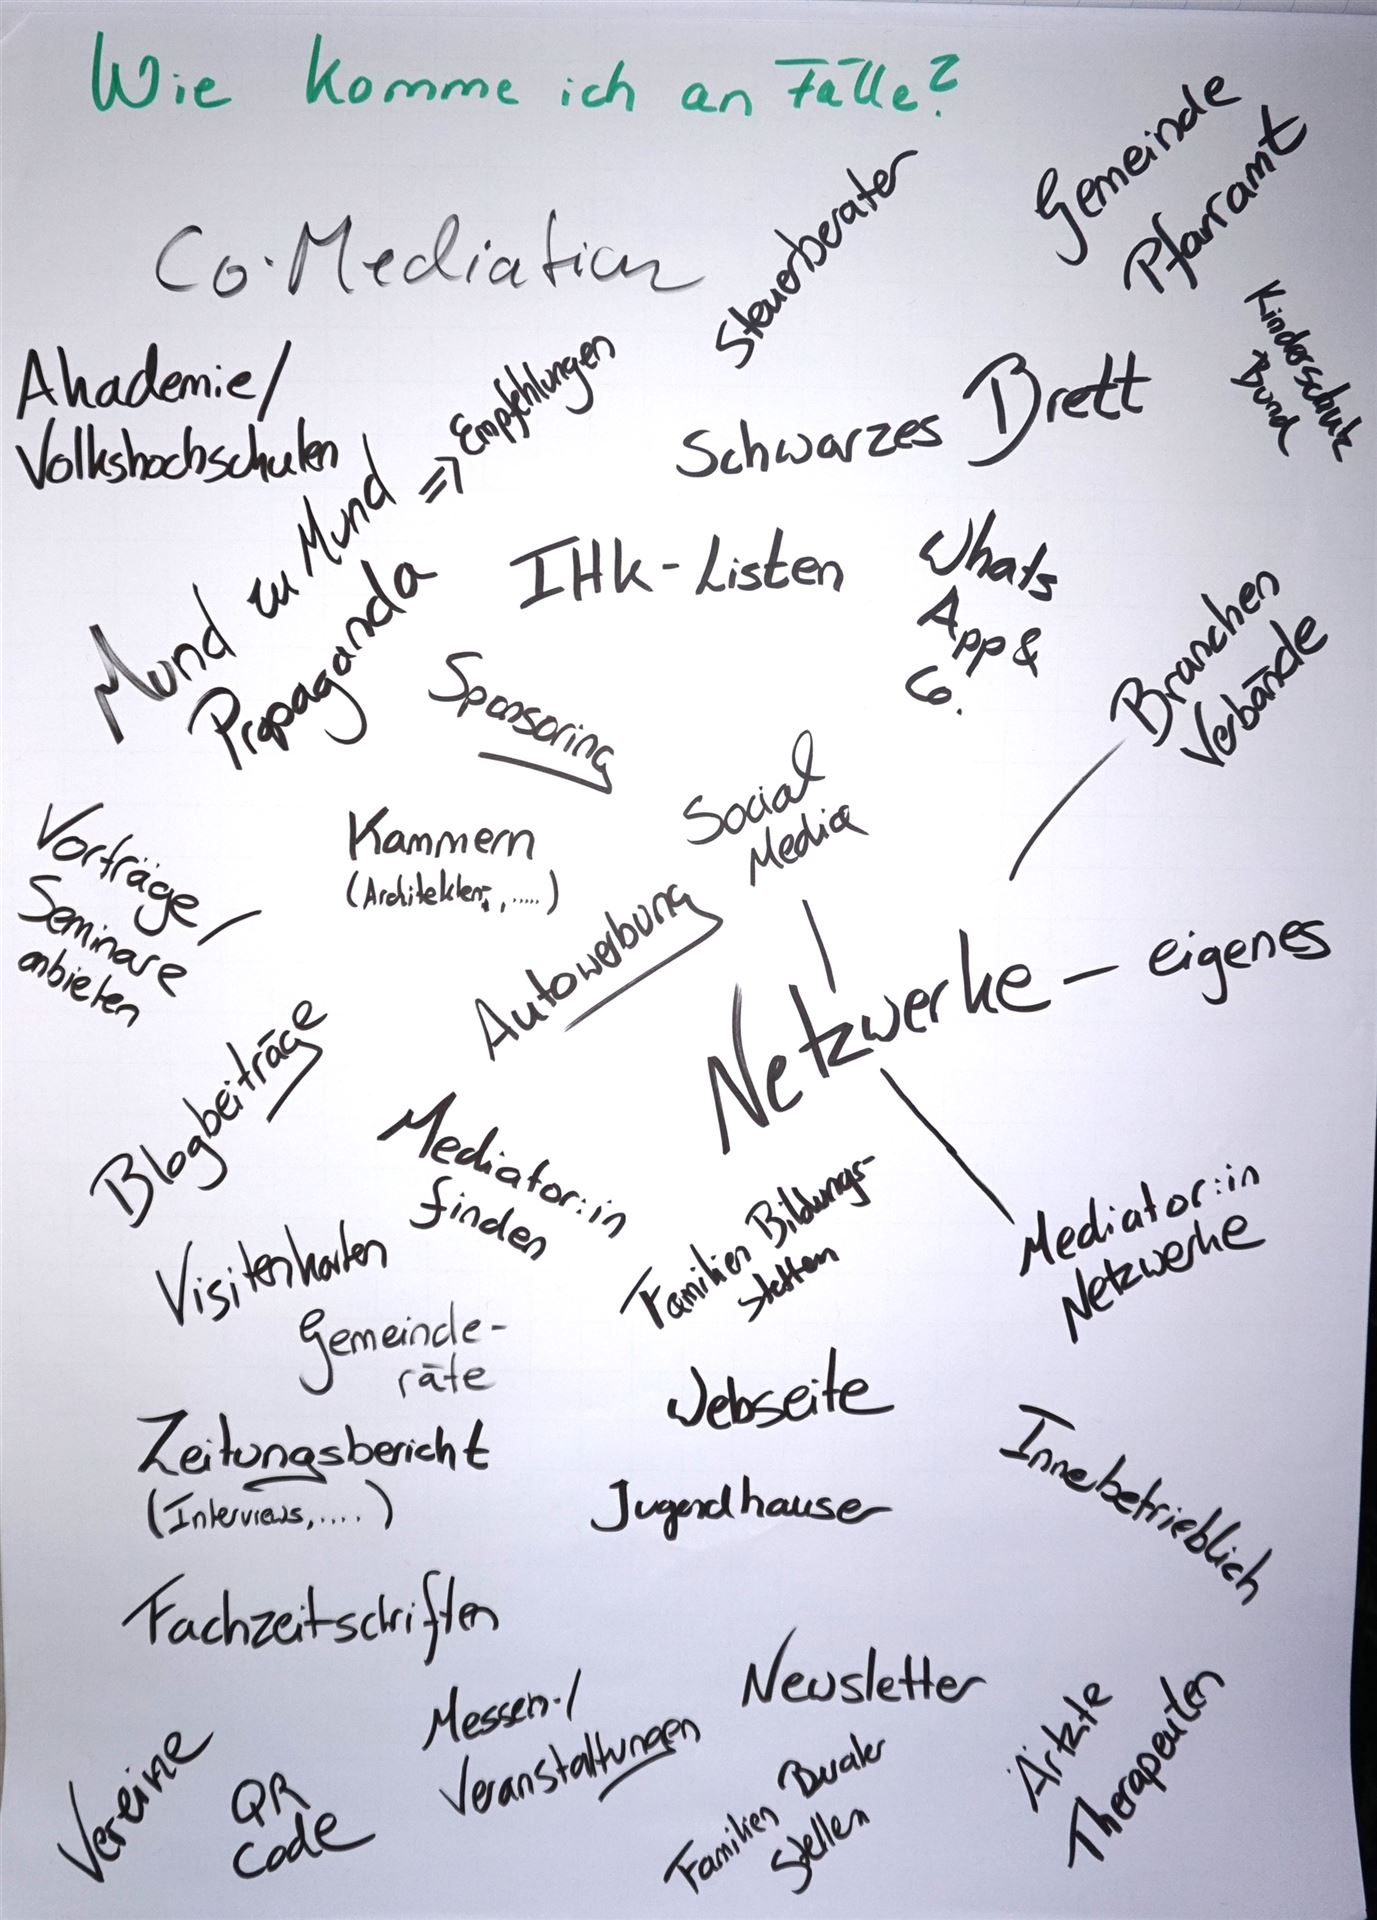 Wie komme ich an Fälle?
Gemeinde
Pfarramt
Steuerberater
Co-Mediation
Kinderschutz
Bund
Akademie/
Volkshochschulen
Mund zu Mund => Empfehlungen
Propaganda
Schwarzes Brett
IHK-Listen
Whats
App &
Co.
Branchen
Verbände
Sponsoring
Social
Media
Kammern
(Architekten, .....)
Vorträge
Seminare
anbieten
Autowerbung
Netzwerke – eigenes
Blogbeiträge
Mediator:in
finden
Familien Bildungs-
stetten
Mediator:in
Netzwerke
Visitenkarten
Gemeinde-
räte
Webseite
Zeitungsbericht
(Interviews, ....)
Jugendhauser
Innebetrieblich
Fachzeitschriften
Newsletter
Messen-/
Veranstaltungen
Ärtzte
Therapeuten
Vereine
QR
Code
Familien Berater
Stellen